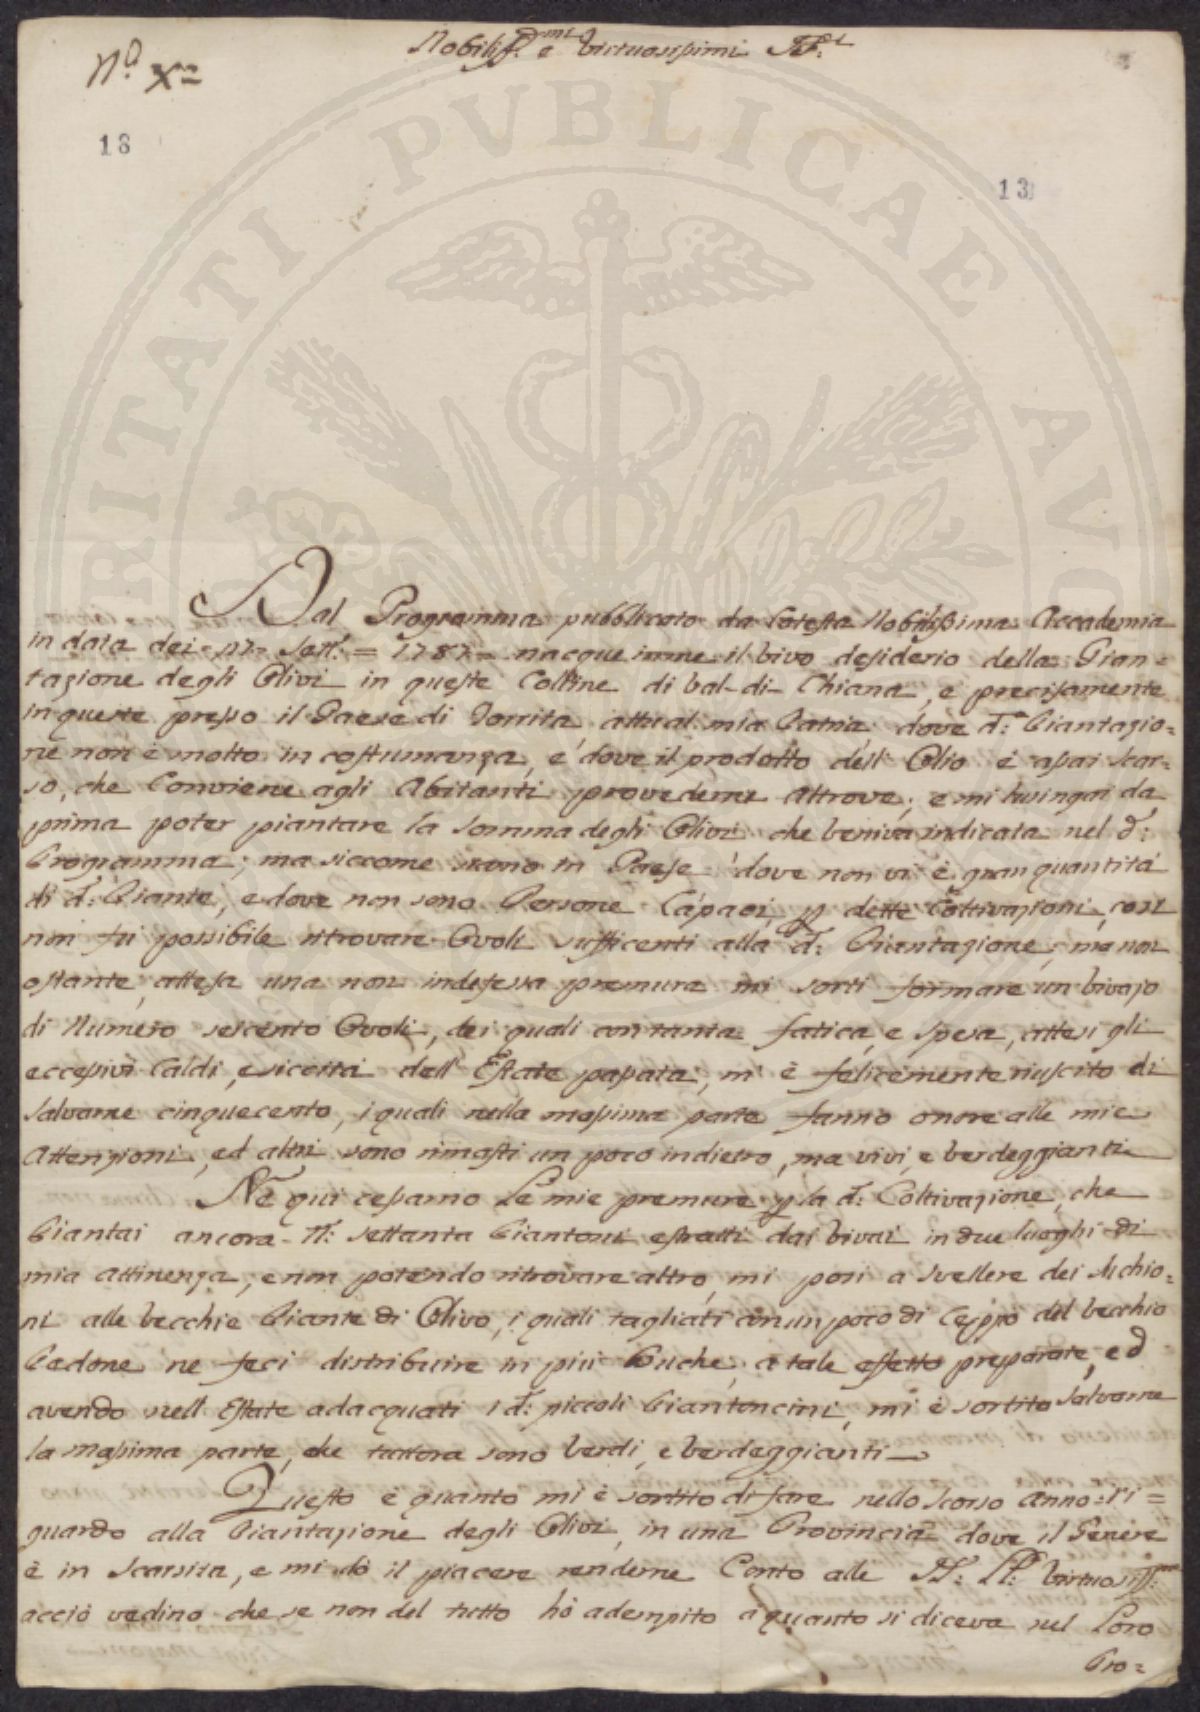 N.º X.º
Nobiliss.mi e Virtuosissimi SS.ri
18
13
PRITATI PUBLICAE AUG
Dal Programma pubblicato da Cotesta Nobilissima Accademia
in data dei 17 Sett.e = 1787 = nacque in me il vivo desiderio della Pian=
tazione degli Olivi in queste Colline di Val-di-Chiana, e precisamente
in queste presso il Paese di Torrita, attual mia Patria, dove d.a Piantazio=
ne non è molto in costumanza, e dove il prodotto dell'Olio è assai scar=
so, che Conviene agli Abitanti provedersi altrove; e mi lusingai da
prima poter piantare la somma degli Olivi che veniva indicata nel d.º
Programma; ma siccome siamo in Paese dove non vi è gran quantità
di d.e Piante, e dove non sono Persone Capaci p dette Coltivazioni, così
non fu possibile ritrovare Ovoli sufficenti alla d.a Piantazione; ma non
ostante, attesa una non indefessa premura mi sortì formare un Vivajo
di Numero seicento Ovoli, dei quali con tanta fatica, e spesa, attesi gli
eccessivi Caldi, e siccità dell'Estate passata, m'è felicemente riuscito di
salvarne cinquecento, i quali nella massima parte fanno onore alle mie
Attenzioni, ed altri sono rimasti un poco indietro, ma vivi, e verdeggianti
Nè qui cessarno Le mie premure p la d.a Coltivazione, che
Piantai ancora N.º settanta Piantoni estratti dai vivai in due luoghi di
mia Attinenza, e non potendo ritrovare altro, mi posi a svellere dei Suchio=
ni alle vecchie Piante di Olivo, i quali tagliati con un poco di Ceppo del vecchio
Pedone ne feci distribuire in più Buche, a tale effetto preparate, ed
avendo nell'Estate adacquati i d.i piccoli Piantoncini, mi è sortito salvarne
la massima parte, che tuttora sono Verdi, e verdeggianti
Questo è quanto mi è sortito di fare nello scorso Anno ri=
guardo alla Piantazione degli Olivi, in una Provincia dove il Genere
è in Scarsità, e mi dò il piacere renderne Conto alle SS: LL: Virtuosiss.me
acciò vedino che se non del tutto hò adempito a quanto si diceva nel Loro
Pro=